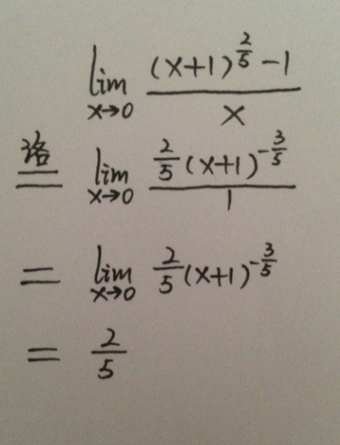 lim x→0 ((x+1)^(2/5) - 1)/x
洛 = lim x→0 (2/5 (x+1)^(-3/5))/1
= lim x→0 2/5 (x+1)^(-3/5)
= 2/5